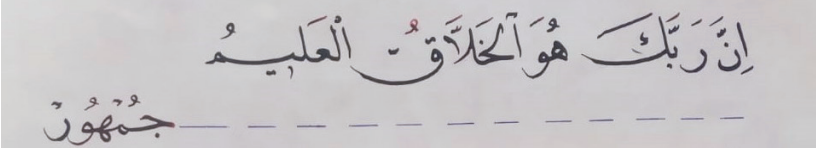 إِنَّ رَبَّكَ هُوَ ٱلْخَلَّاقُ الْعَلِيمُ
جُمْهُورٌ